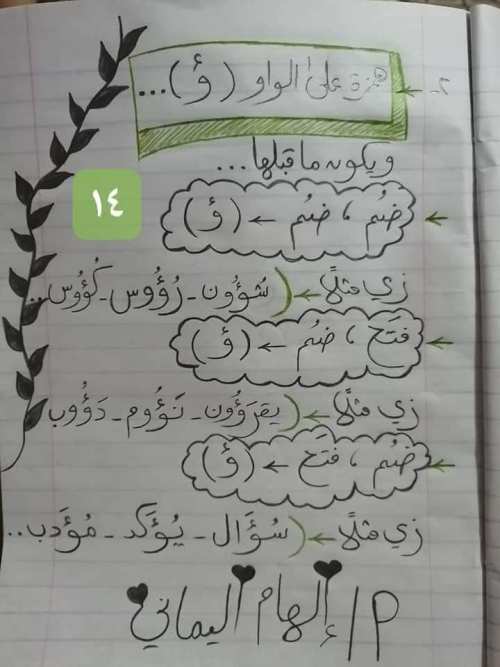 ٢- همزة على الواو (ؤ)...
ويكون ما قبلها...
١٤
ضُم ، ضُم ← (ؤ)
زي مثلًا ← (شُؤُون - رُؤُوس - كُؤُوس..
فَتَح ، ضُم ← (ؤ)
زي مثلًا ← (يقرَؤُون - نَؤُوم - دَؤُوب
ضُم ، فَتَح ← (ؤ)
زي مثلًا ← (سُؤَال - يُؤَكد - مُؤَدب..
م/ إلهام اليماني